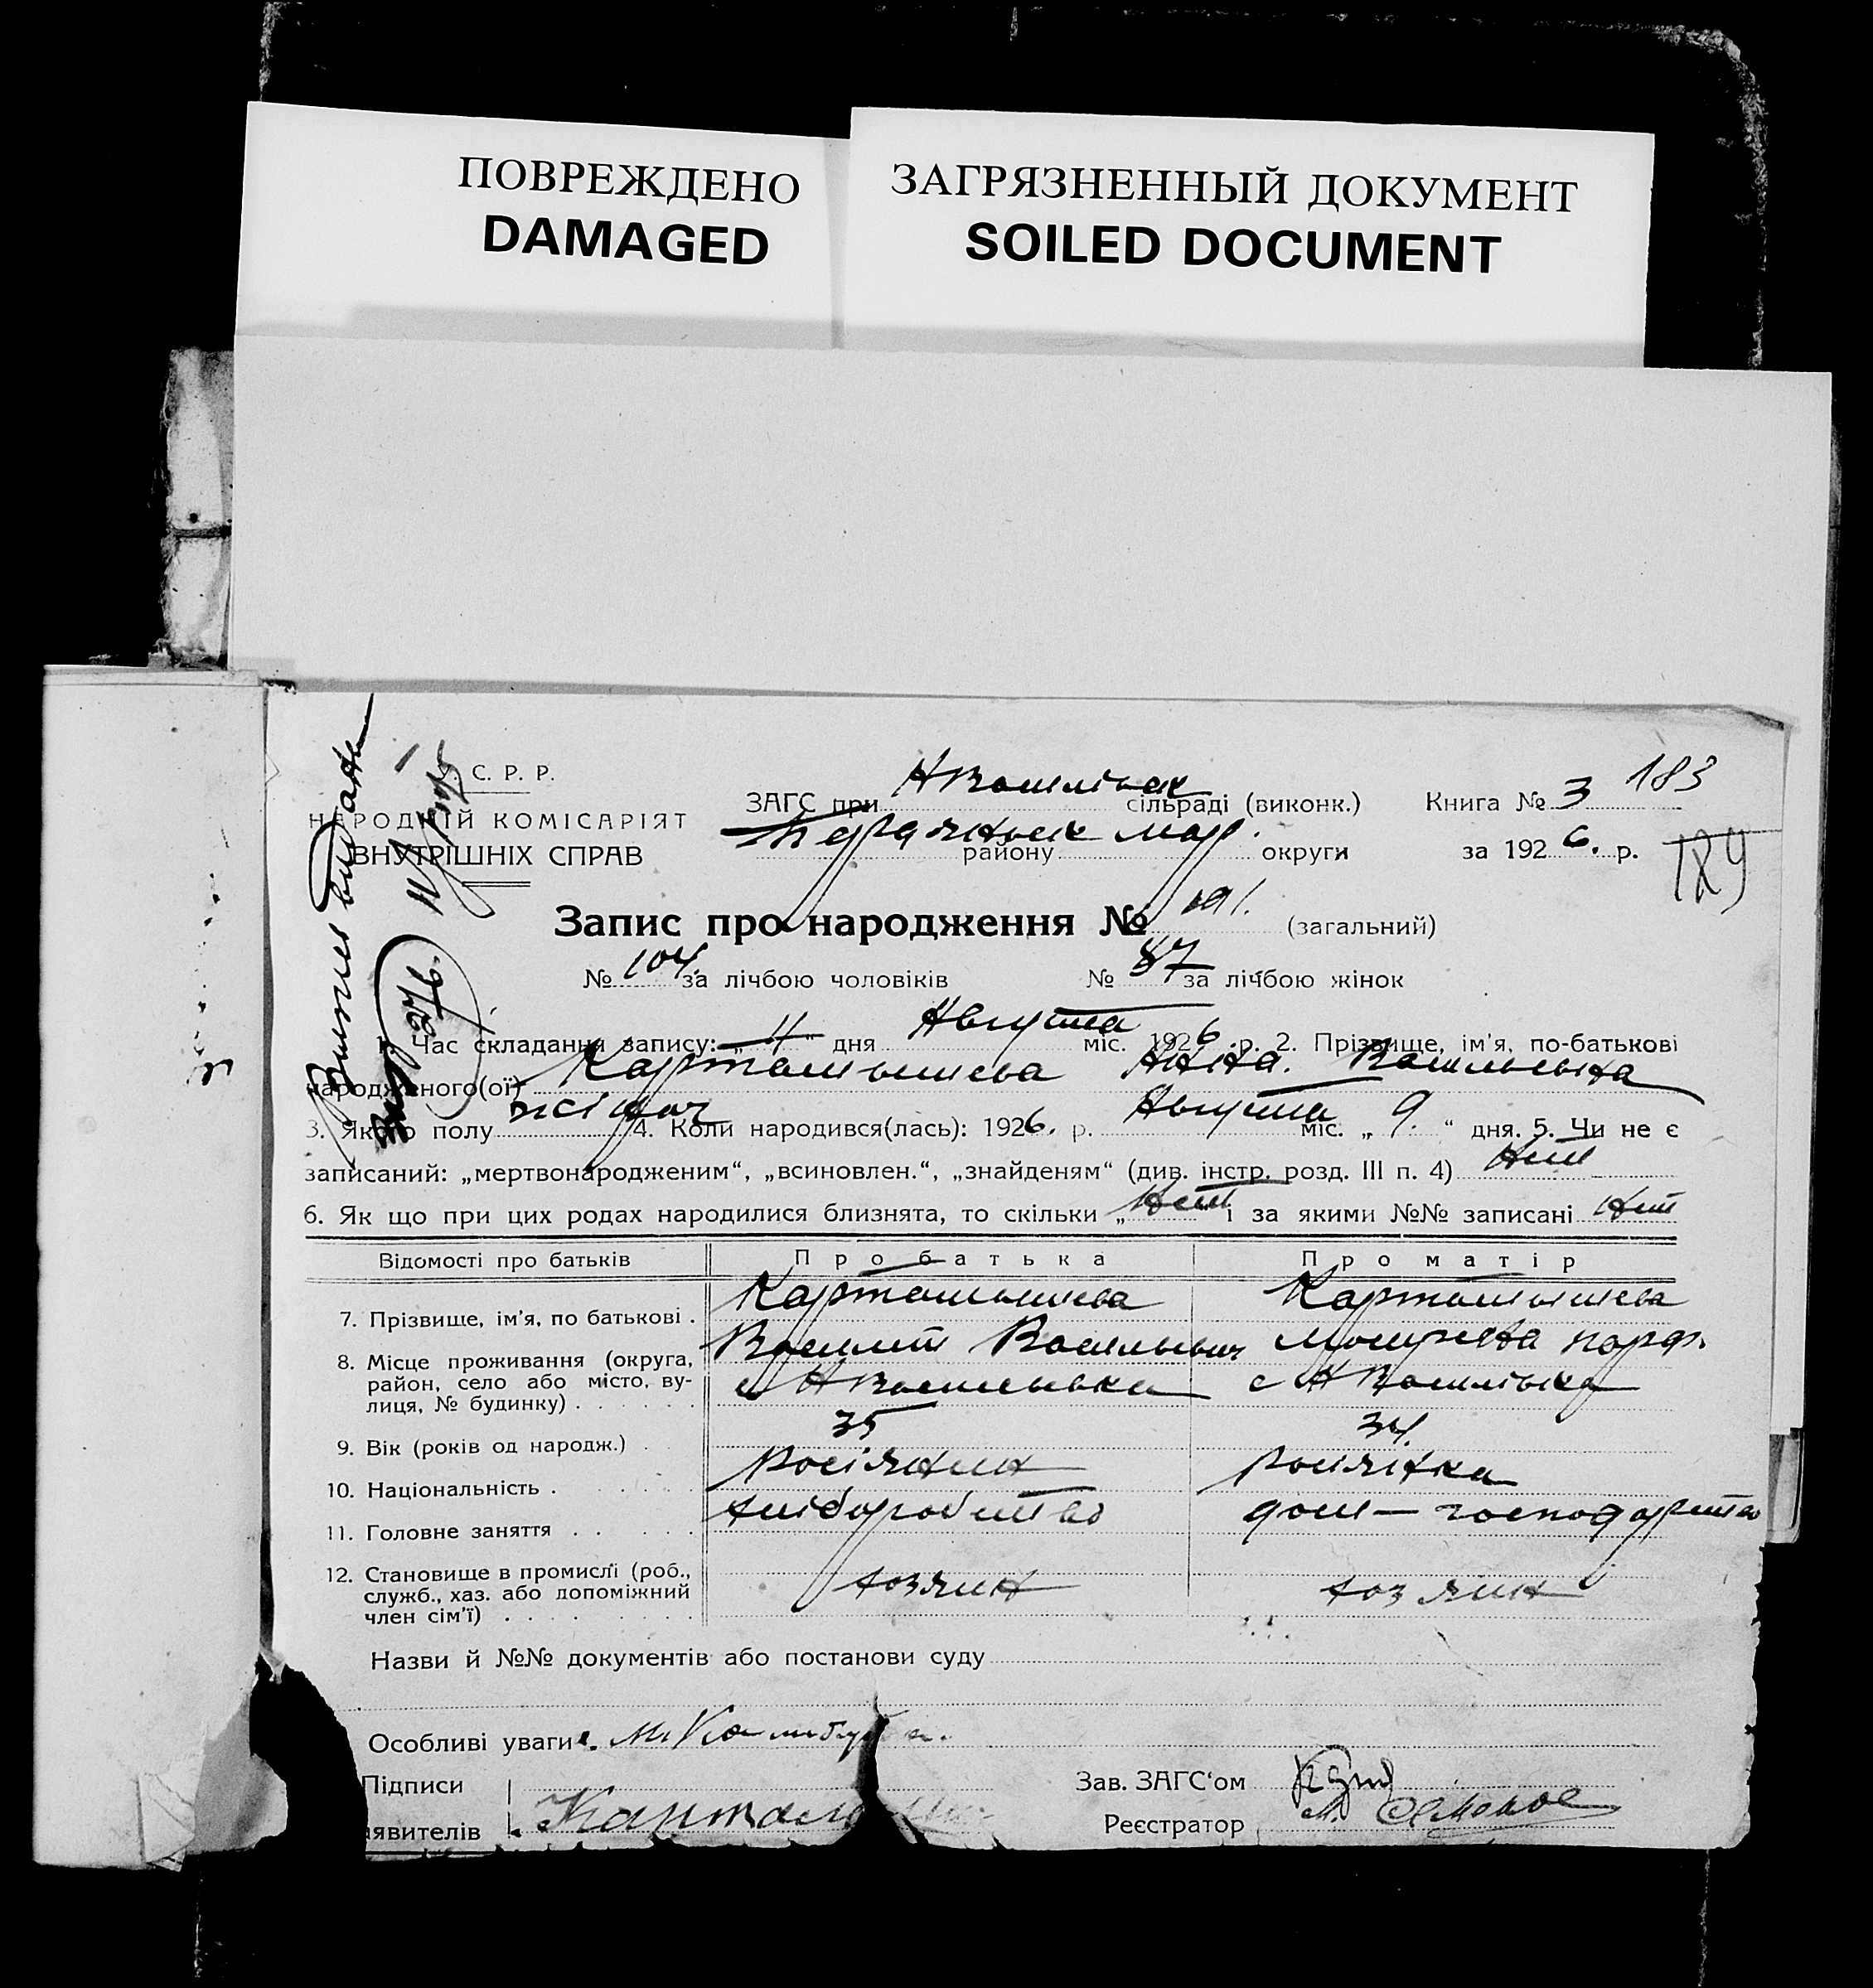 ПОВРЕЖДЕНО
DAMAGED
ЗАГРЯЗНЕННЫЙ ДОКУМЕНТ
SOILED DOCUMENT
У. С. Р. Р.
НАРОДНІЙ КОМІСАРІЯТ
ВНУТРІШНІХ СПРАВ
ЗАГС при НВасилівск сільраді (виконк.)
району Мар. округи
Книга № 3 183
за 1926. р.
Запис про народження № 191. (загальний)
№ 104. за лічбою чоловіків № 87 за лічбою жінок
1. Час складання запису: „11“ дня Августа міс. 1926 р. 2. Прізвище, ім'я, по-батькові
народженого(ої) Картамышева Анна. Васильевна
3. Якого полу жіноч 4. Коли народився(лась): 1926. р. Августа міс. „9.“ дня. 5. Чи не є
записаний: „мертвонародженим“, „всиновлен.“, „знайденям“ (див. інстр. розд. III п. 4) Нет
6. Як що при цих родах народилися близнята, то скільки „Нет“ і за якими №№ записані Нет
Відомості про батьків Про батька Про матір
7. Прізвище, ім'я, по батькові . Картамышева Картамышева
Василий Васильевич парф.
8. Місце проживання (округа, район, село або місто, вулиця, № будинку) . . . . . . с НВасилівка с НВасилівка
9. Вік (років од народж.) . 35 34.
10. Національність . Росіянин Росіянка
11. Головне заняття . . . . . хліборобство дом — господарство
12. Становище в промислі (роб., служб., хаз. або допоміжний член сім'ї) . . . . хозяин хозяин
Назви й №№ документів або постанови суду
Особливі уваги
Підписи
явителів
Зав. ЗАГС‘ом
Реєстратор